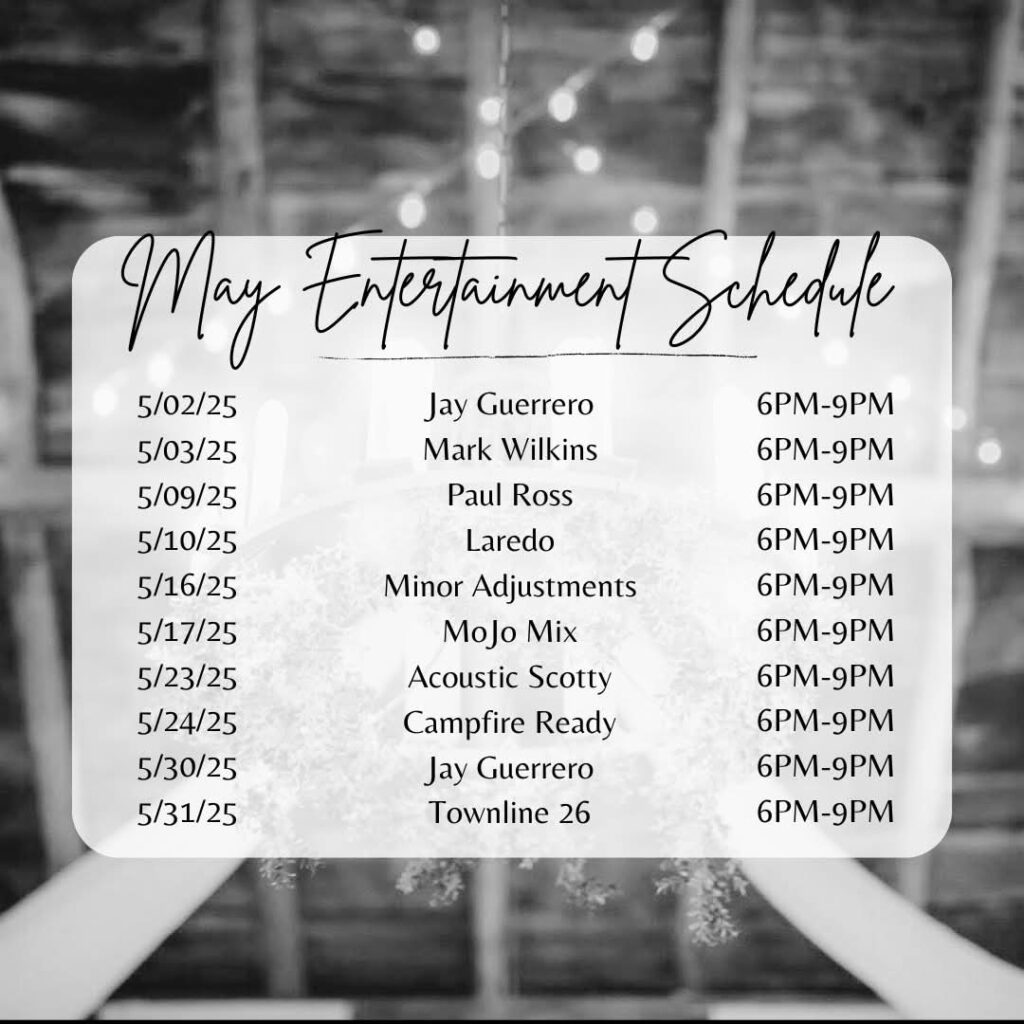 May Entertainment Schedule
5/02/25 Jay Guerrero 6PM-9PM
5/03/25 Mark Wilkins 6PM-9PM
5/09/25 Paul Ross 6PM-9PM
5/10/25 Laredo 6PM-9PM
5/16/25 Minor Adjustments 6PM-9PM
5/17/25 MoJo Mix 6PM-9PM
5/23/25 Acoustic Scotty 6PM-9PM
5/24/25 Campfire Ready 6PM-9PM
5/30/25 Jay Guerrero 6PM-9PM
5/31/25 Townline 26 6PM-9PM